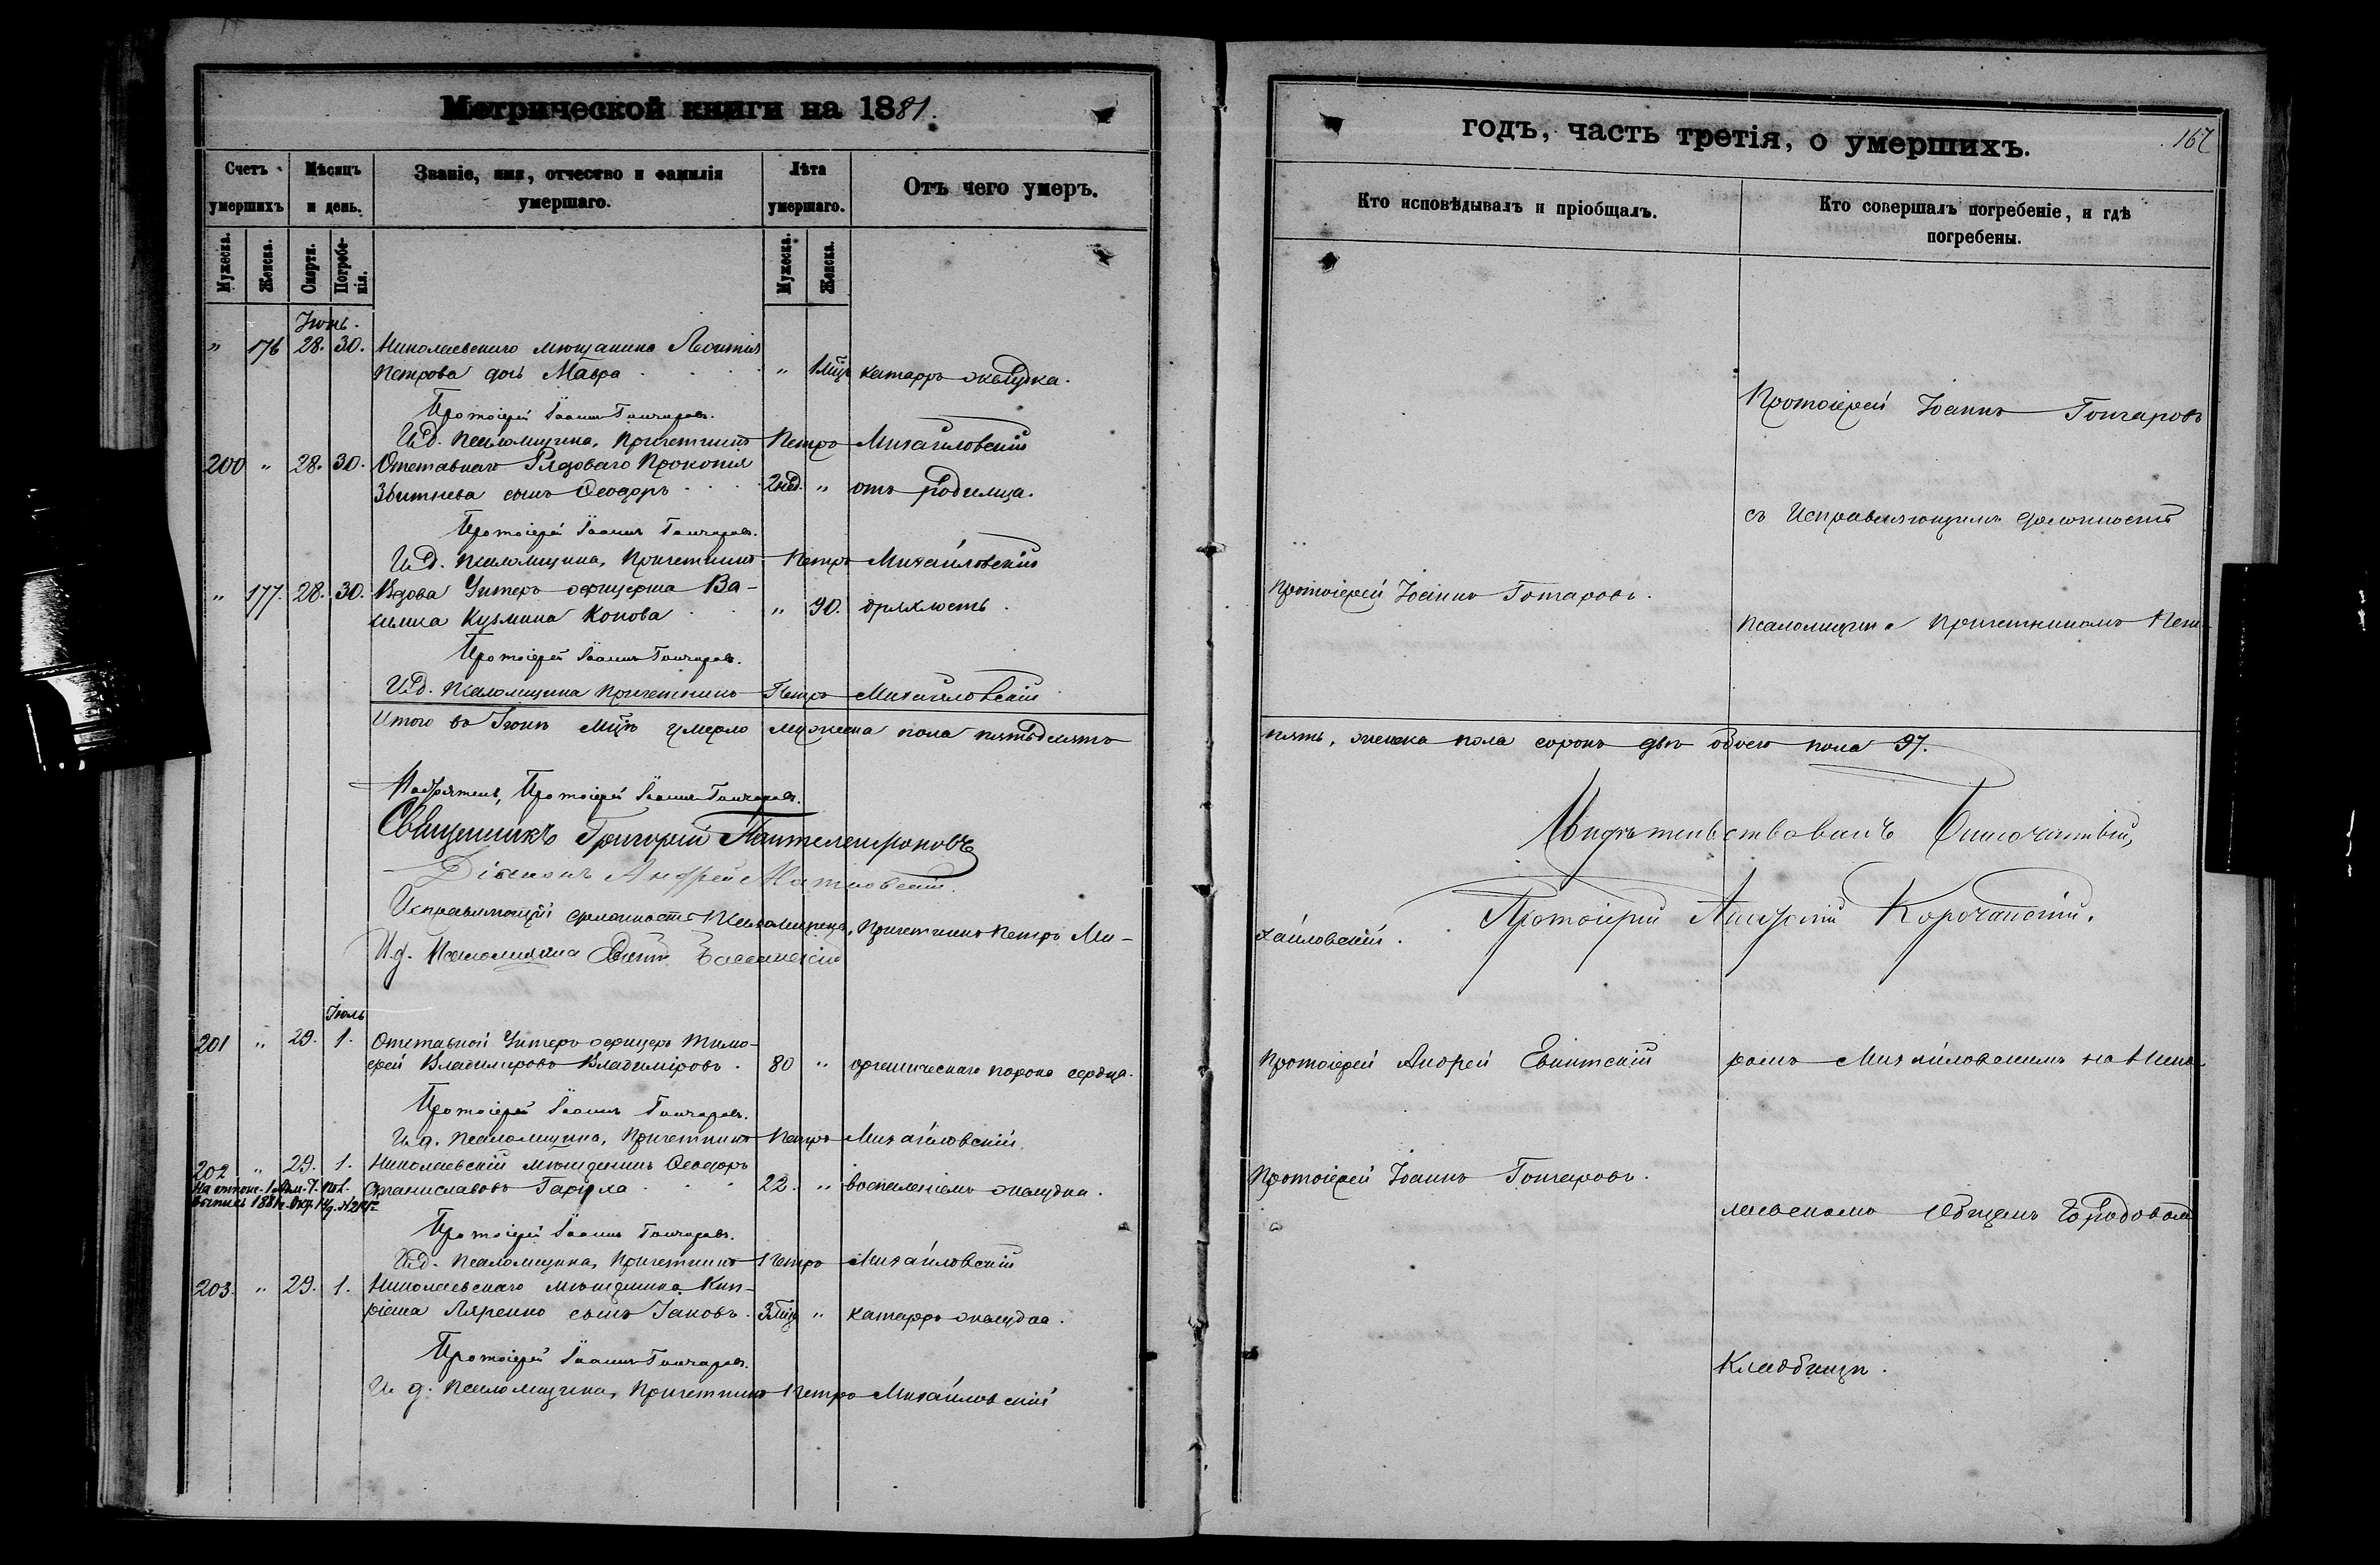 Метрической книги на 1881.
Счетъ умершихъ
Мѣсяцъ и день.
Званіе, имя, отчество и фамилія умершаго.
Лѣта умершаго.
Отъ чего умеръ.
Мужеска.
Женска.
Смерти.
Погребенія.
Мужеска.
Женска.
Іюнь.
" 176 28. 30. Николаевскаго мѣщанина Леонтія
Петрова дочь Мавра " 1 мѣц катарръ желудка.
Протоіерей Іоаннъ Гончаровъ.
И.д. псаломщика, Причетникъ Петръ Михайловскій
200 " 28. 30. Отставнаго Рядоваго Прокопія
сынъ Ѳеодоръ 2 нед. " отъ родимца.
Протоіерей Іоаннъ Гончаровъ.
И.д. псаломщика, Причетникъ Петръ Михайловскій
" 177. 28. 30. Вдова Унтеръ офицерша Ва-
силиса Кузмина Конова " 90. дряхлость.
Протоіерей Іоаннъ Гончаровъ.
И.д. псаломщика Причетникъ Петръ Михайловскій
Итого въ Іюнѣ мѣцѣ умерло мужеска пола пятьдесятъ
Протоіерей Іоаннъ Гончаровъ.
Священникъ Григорій Пантелеимоновъ
Діаконъ Андрей
Исправляющій должность Псаломщика, Причетникъ Петръ Ми-
И.д. Псаломщика
Іюль
201 " 29. 1. Отставной Унтеръ-офицеръ Тимо-
фей Владиміровъ Владиміровъ. 80 " органическаго порока сердца.
Протоіерей Іоаннъ Гончаровъ.
И.д. псаломщика, Причетникъ Петръ Михайловскій.
202 " 29. 1. Николаевскій мѣщанинъ Ѳеодоръ
Станиславовъ 22. " воспаленіемъ желудка.
Протоіерей Іоаннъ Гончаровъ.
И.д. псаломщика, Причетникъ Петръ Михайловскій
203. " 29. 1. Николаевскаго мѣщанина Кип-
ріана Ляренко сынъ Іаковъ. 3 мѣц " катарръ желудка.
Протоіерей Іоаннъ Гончаровъ.
И.д. псаломщика, Причетникъ Петръ Михайловскій
годъ, часть третія, о умершихъ.
167
Кто исповѣдывалъ и пріобщалъ.
Кто совершалъ погребеніе, и гдѣ погребены.
Протоіерей Іоаннъ Гончаровъ
съ Исправляющимъ должность
Протоіерей Іоаннъ Гончаровъ.
псаломщика Причетникомъ Пет-
пять, женска пола сорокъ двѣ обоего пола 97.
Свидѣтельствовалъ Благочинный,
Протоіерей Корочанскій.
хайловскій.
Протоіерей Андрей
ромъ Михайловскимъ на Нико-
Протоіерей Іоаннъ Гончаровъ.
лаевскомъ Общемъ Городовомъ
Кладбищѣ.